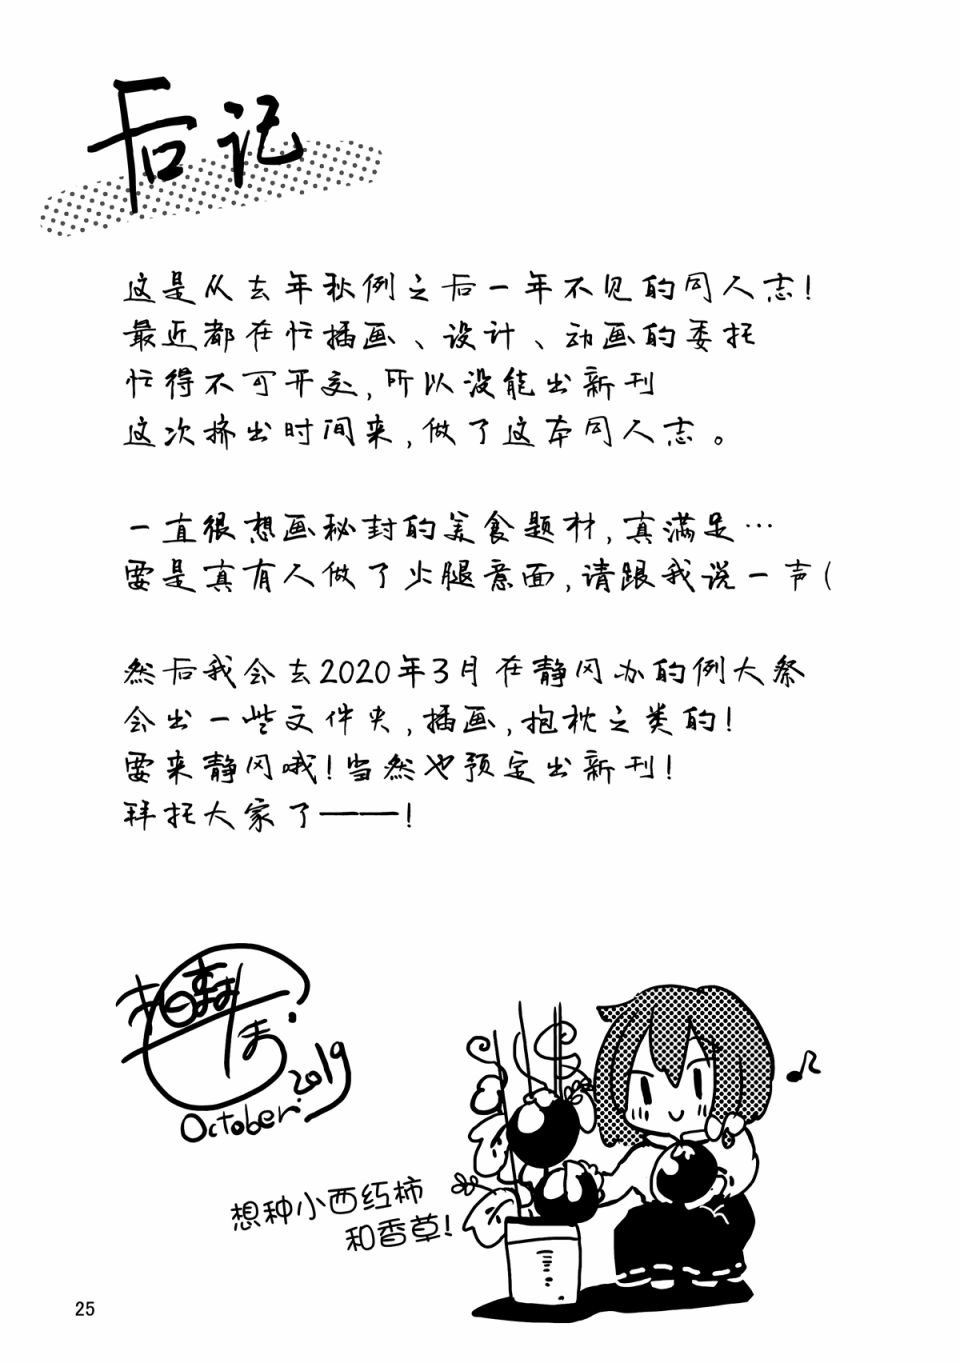 后记
这是从去年秋例之后一年不见的同人志!
最近都在忙插画、设计、动画的委托
忙得不可开交,所以没能出新刊
这次挤出时间来,做了这本同人志。
一直很想画秘封的美食题材,真满足…
要是真有人做了火腿意面,请跟我说一声(
然后我会去2020年3月在静冈办的例大祭
会出一些文件夹,插画,抱枕之类的!
要来静冈哦!当然也预定出新刊!
拜托大家了——!
October.2019
想种小西红柿
和香草!
25